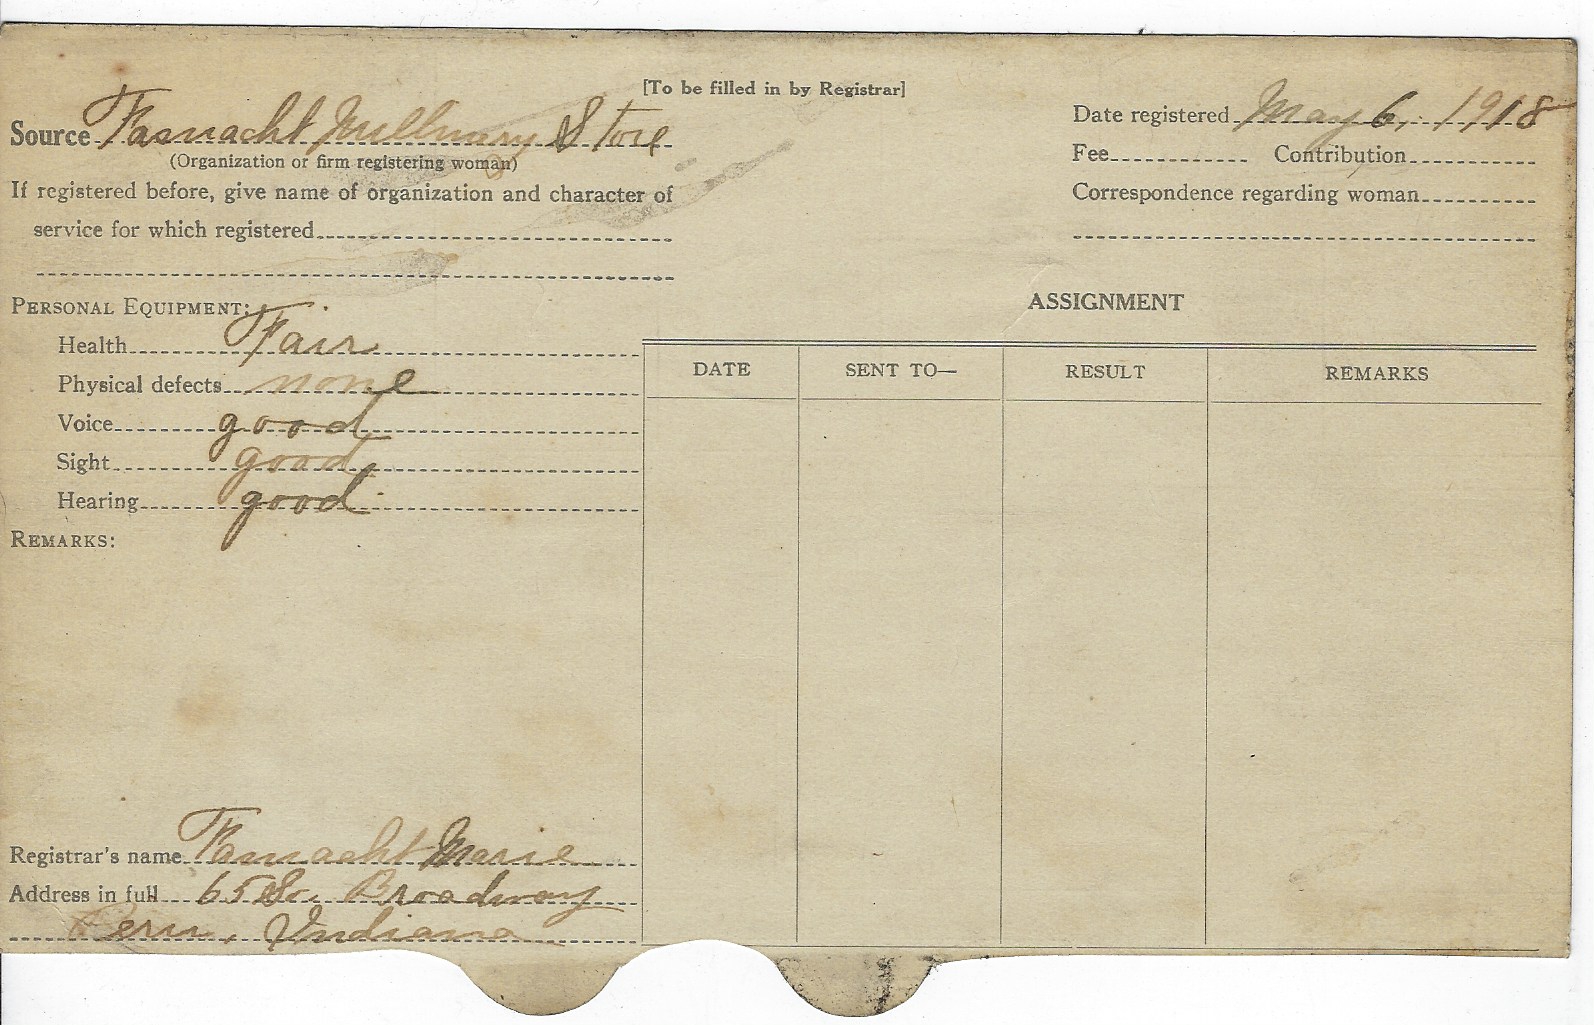 [To be filled in by Registrar]
Source Fasnacht Millinery Store
(Organization or firm registering woman)
If registered before, give name of organization and character of
service for which registered
Date registered May 6, 1918
Fee Contribution
Correspondence regarding woman
PERSONAL EQUIPMENT:
Health Fair
Physical defects none
Voice good
Sight good
Hearing good
REMARKS:
Registrar's name Fasnacht Marie
Address in full 65 So. Broadway
Peru, Indiana
ASSIGNMENT
DATE SENT TO— RESULT REMARKS